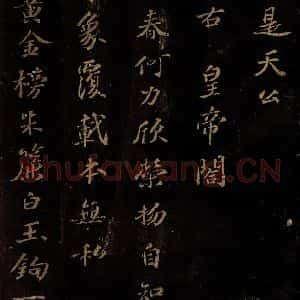 是天公
右皇帝閣
春何力欣榮物自知
象覆載本無私
黃金榜朱簾白玉鉤
Shufawang.CN